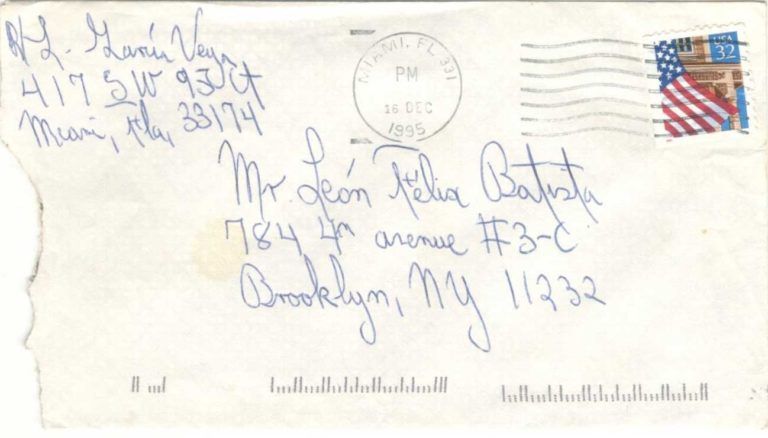 H. L. García Vega
417 SW 93 Ct
Miami, Fla, 33174
MIAMI, FL 331
PM
16 DEC
1995
USA
32
Mr. León Félix Batista
784 4th avenue #3-C
Brooklyn, NY 11232